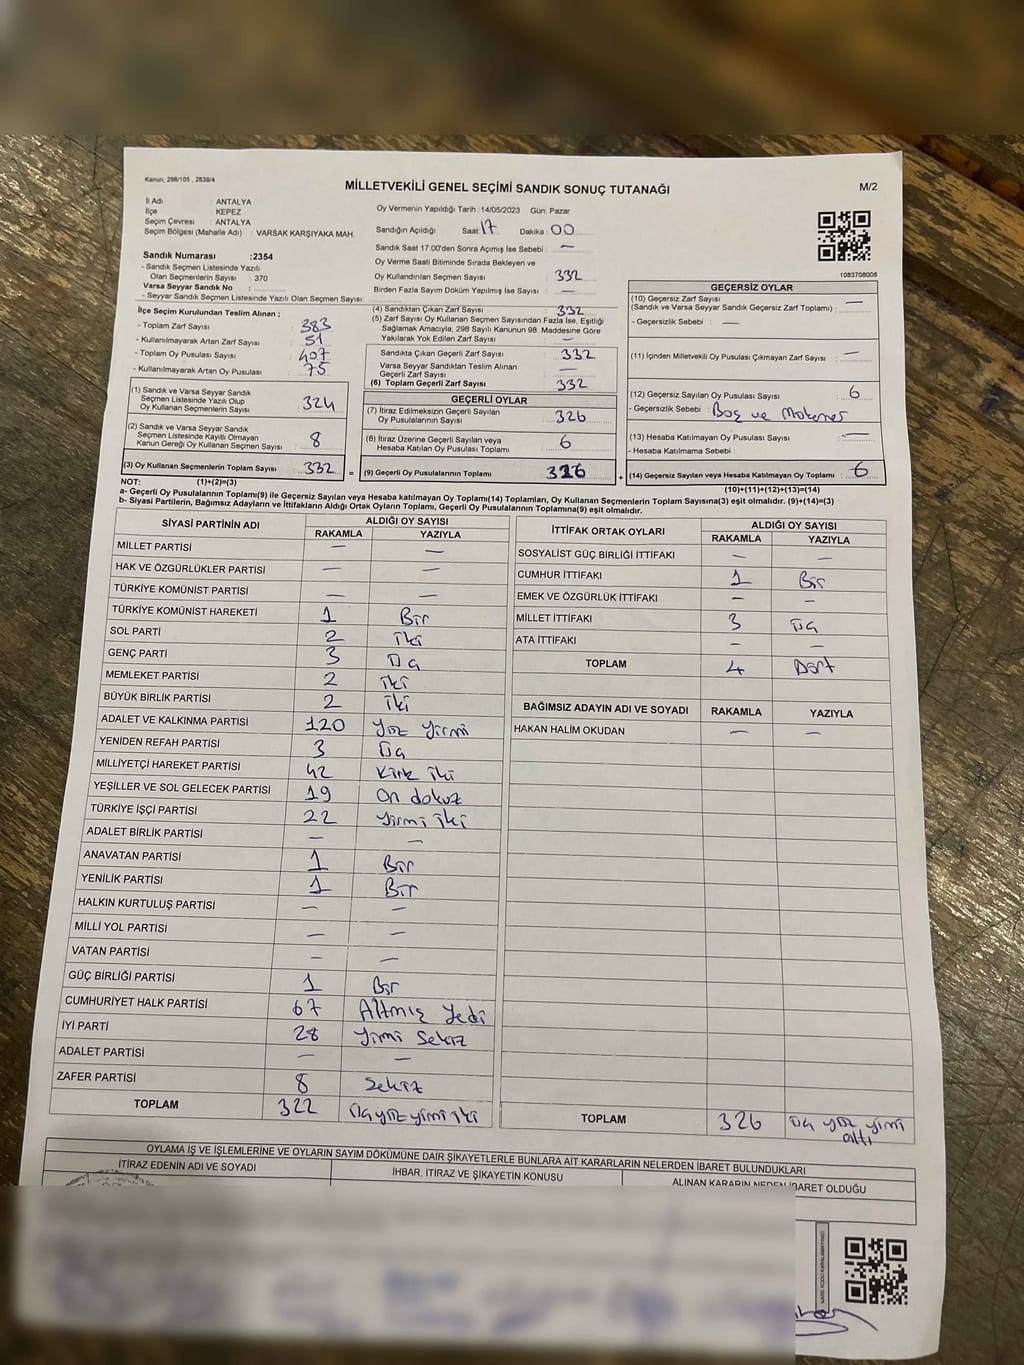 Kanun: 298/105 , 2839/4
MİLLETVEKİLİ GENEL SEÇİMİ SANDIK SONUÇ TUTANAĞI
M/2
İl Adı : ANTALYA
İlçe : KEPEZ
Seçim Çevresi : ANTALYA
Seçim Bölgesi (Mahalle Adı) : VARSAK KARŞIYAKA MAH.
Oy Vermenin Yapıldığı Tarih :14/05/2023 Gün: Pazar
Sandığın Açıldığı Saat: 17 Dakika: 00
Sandık Saat 17:00'den Sonra Açılmış İse Sebebi : —
Oy Verme Saati Bitiminde Sırada Bekleyen ve
Oy Kullandırılan Seçmen Sayısı : 332
Birden Fazla Sayım Döküm Yapılmış İse Sayısı : —
1083708008
Sandık Numarası :2354
- Sandık Seçmen Listesinde Yazılı
Olan Seçmenlerin Sayısı : 370
Varsa Seyyar Sandık No :
- Seyyar Sandık Seçmen Listesinde Yazılı Olan Seçmen Sayısı:
İlçe Seçim Kurulundan Teslim Alınan ;
- Toplam Zarf Sayısı : 383
- Kullanılmayarak Artan Zarf Sayısı : 51
- Toplam Oy Pusulası Sayısı : 407
- Kullanılmayarak Artan Oy Pusulası : 75
(1) Sandık ve Varsa Seyyar Sandık
Seçmen Listesinde Yazılı Olup
Oy Kullanan Seçmenlerin Sayısı : 324
(2) Sandık ve Varsa Seyyar Sandık
Seçmen Listesinde Kayıtlı Olmayan
Kanun Gereği Oy Kullanan Seçmen Sayısı : 8
(3) Oy Kullanan Seçmenlerin Toplam Sayısı : 332
(4) Sandıktan Çıkan Zarf Sayısı : 332
(5) Zarf Sayısı Oy Kullanan Seçmen Sayısından Fazla İse, Eşitliği
Sağlamak Amacıyla, 298 Sayılı Kanunun 98. Maddesine Göre
Yakılarak Yok Edilen Zarf Sayısı : —
Sandıkta Çıkan Geçerli Zarf Sayısı : 332
Varsa Seyyar Sandıktan Teslim Alınan
Geçerli Zarf Sayısı : —
(6) Toplam Geçerli Zarf Sayısı : 332
GEÇERLİ OYLAR
(7) İtiraz Edilmeksizin Geçerli Sayılan
Oy Pusulalarının Sayısı : 326
(8) İtiraz Üzerine Geçerli Sayılan veya
Hesaba Katılan Oy Pusulası Toplamı : 6
= (9) Geçerli Oy Pusulalarının Toplamı 326
GEÇERSİZ OYLAR
(10) Geçersiz Zarf Sayısı : —
(Sandık ve Varsa Seyyar Sandık Geçersiz Zarf Toplamı)
- Geçersizlik Sebebi : —
(11) İçinden Milletvekili Oy Pusulası Çıkmayan Zarf Sayısı : —
(12) Geçersiz Sayılan Oy Pusulası Sayısı : 6
- Geçersizlik Sebebi : Boş ve
(13) Hesaba Katılmayan Oy Pusulası Sayısı : —
- Hesaba Katılmama Sebebi :
+ (14) Geçersiz Sayılan veya Hesaba Katılmayan Oy Toplamı : 6
NOT: (1)+(2)=(3)
(10)+(11)+(12)+(13)=(14)
a- Geçerli Oy Pusulalarının Toplamı(9) ile Geçersiz Sayılan veya Hesaba katılmayan Oy Toplamı(14) Toplamları, Oy Kullanan Seçmenlerin Toplam Sayısına(3) eşit olmalıdır. (9)+(14)=(3)
b- Siyasi Partilerin, Bağımsız Adayların ve İttifakların Aldığı Ortak Oyların Toplamı, Geçerli Oy Pusulalarının Toplamına(9) eşit olmalıdır.
SİYASİ PARTİNİN ADI ALDIĞI OY SAYISI
RAKAMLA YAZIYLA
MİLLET PARTİSİ — —
HAK VE ÖZGÜRLÜKLER PARTİSİ — —
TÜRKİYE KOMÜNİST PARTİSİ — —
TÜRKİYE KOMÜNİST HAREKETİ 1 Bir
SOL PARTİ 2 iki
GENÇ PARTİ 3 Üç
MEMLEKET PARTİSİ 2 iki
BÜYÜK BİRLİK PARTİSİ 2 iki
ADALET VE KALKINMA PARTİSİ 120 Yüz Yirmi
YENİDEN REFAH PARTİSİ 3 Üç
MİLLİYETÇİ HAREKET PARTİSİ 42 Kırk iki
YEŞİLLER VE SOL GELECEK PARTİSİ 19 On dokuz
TÜRKİYE İŞÇİ PARTİSİ 22 Yirmi iki
ADALET BİRLİK PARTİSİ — —
ANAVATAN PARTİSİ 1 Bir
YENİLİK PARTİSİ 1 Bir
HALKIN KURTULUŞ PARTİSİ — —
MİLLİ YOL PARTİSİ — —
VATAN PARTİSİ — —
GÜÇ BİRLİĞİ PARTİSİ 1 Bir
CUMHURİYET HALK PARTİSİ 67 Altmış Yedi
İYİ PARTİ 28 Yirmi Sekiz
ADALET PARTİSİ — —
ZAFER PARTİSİ 8 Sekiz
TOPLAM 322 Üç yüz yirmi iki
İTTİFAK ORTAK OYLARI ALDIĞI OY SAYISI
RAKAMLA YAZIYLA
SOSYALİST GÜÇ BİRLİĞİ İTTİFAKI — —
CUMHUR İTTİFAKI 1 Bir
EMEK VE ÖZGÜRLÜK İTTİFAKI — —
MİLLET İTTİFAKI 3 Üç
ATA İTTİFAKI — —
TOPLAM 4 Dört
BAĞIMSIZ ADAYIN ADI VE SOYADI RAKAMLA YAZIYLA
HAKAN HALİM OKUDAN — —
TOPLAM 326 Üç yüz yirmi
altı
OYLAMA İŞ VE İŞLEMLERİNE VE OYLARIN SAYIM DÖKÜMÜNE DAİR ŞİKAYETLERLE BUNLARA AİT KARARLARIN NELERDEN İBARET BULUNDUKLARI
İTİRAZ EDENİN ADI VE SOYADI İHBAR, İTİRAZ VE ŞİKAYETİN KONUSU ALINAN KARARIN NEDEN İBARET OLDUĞU